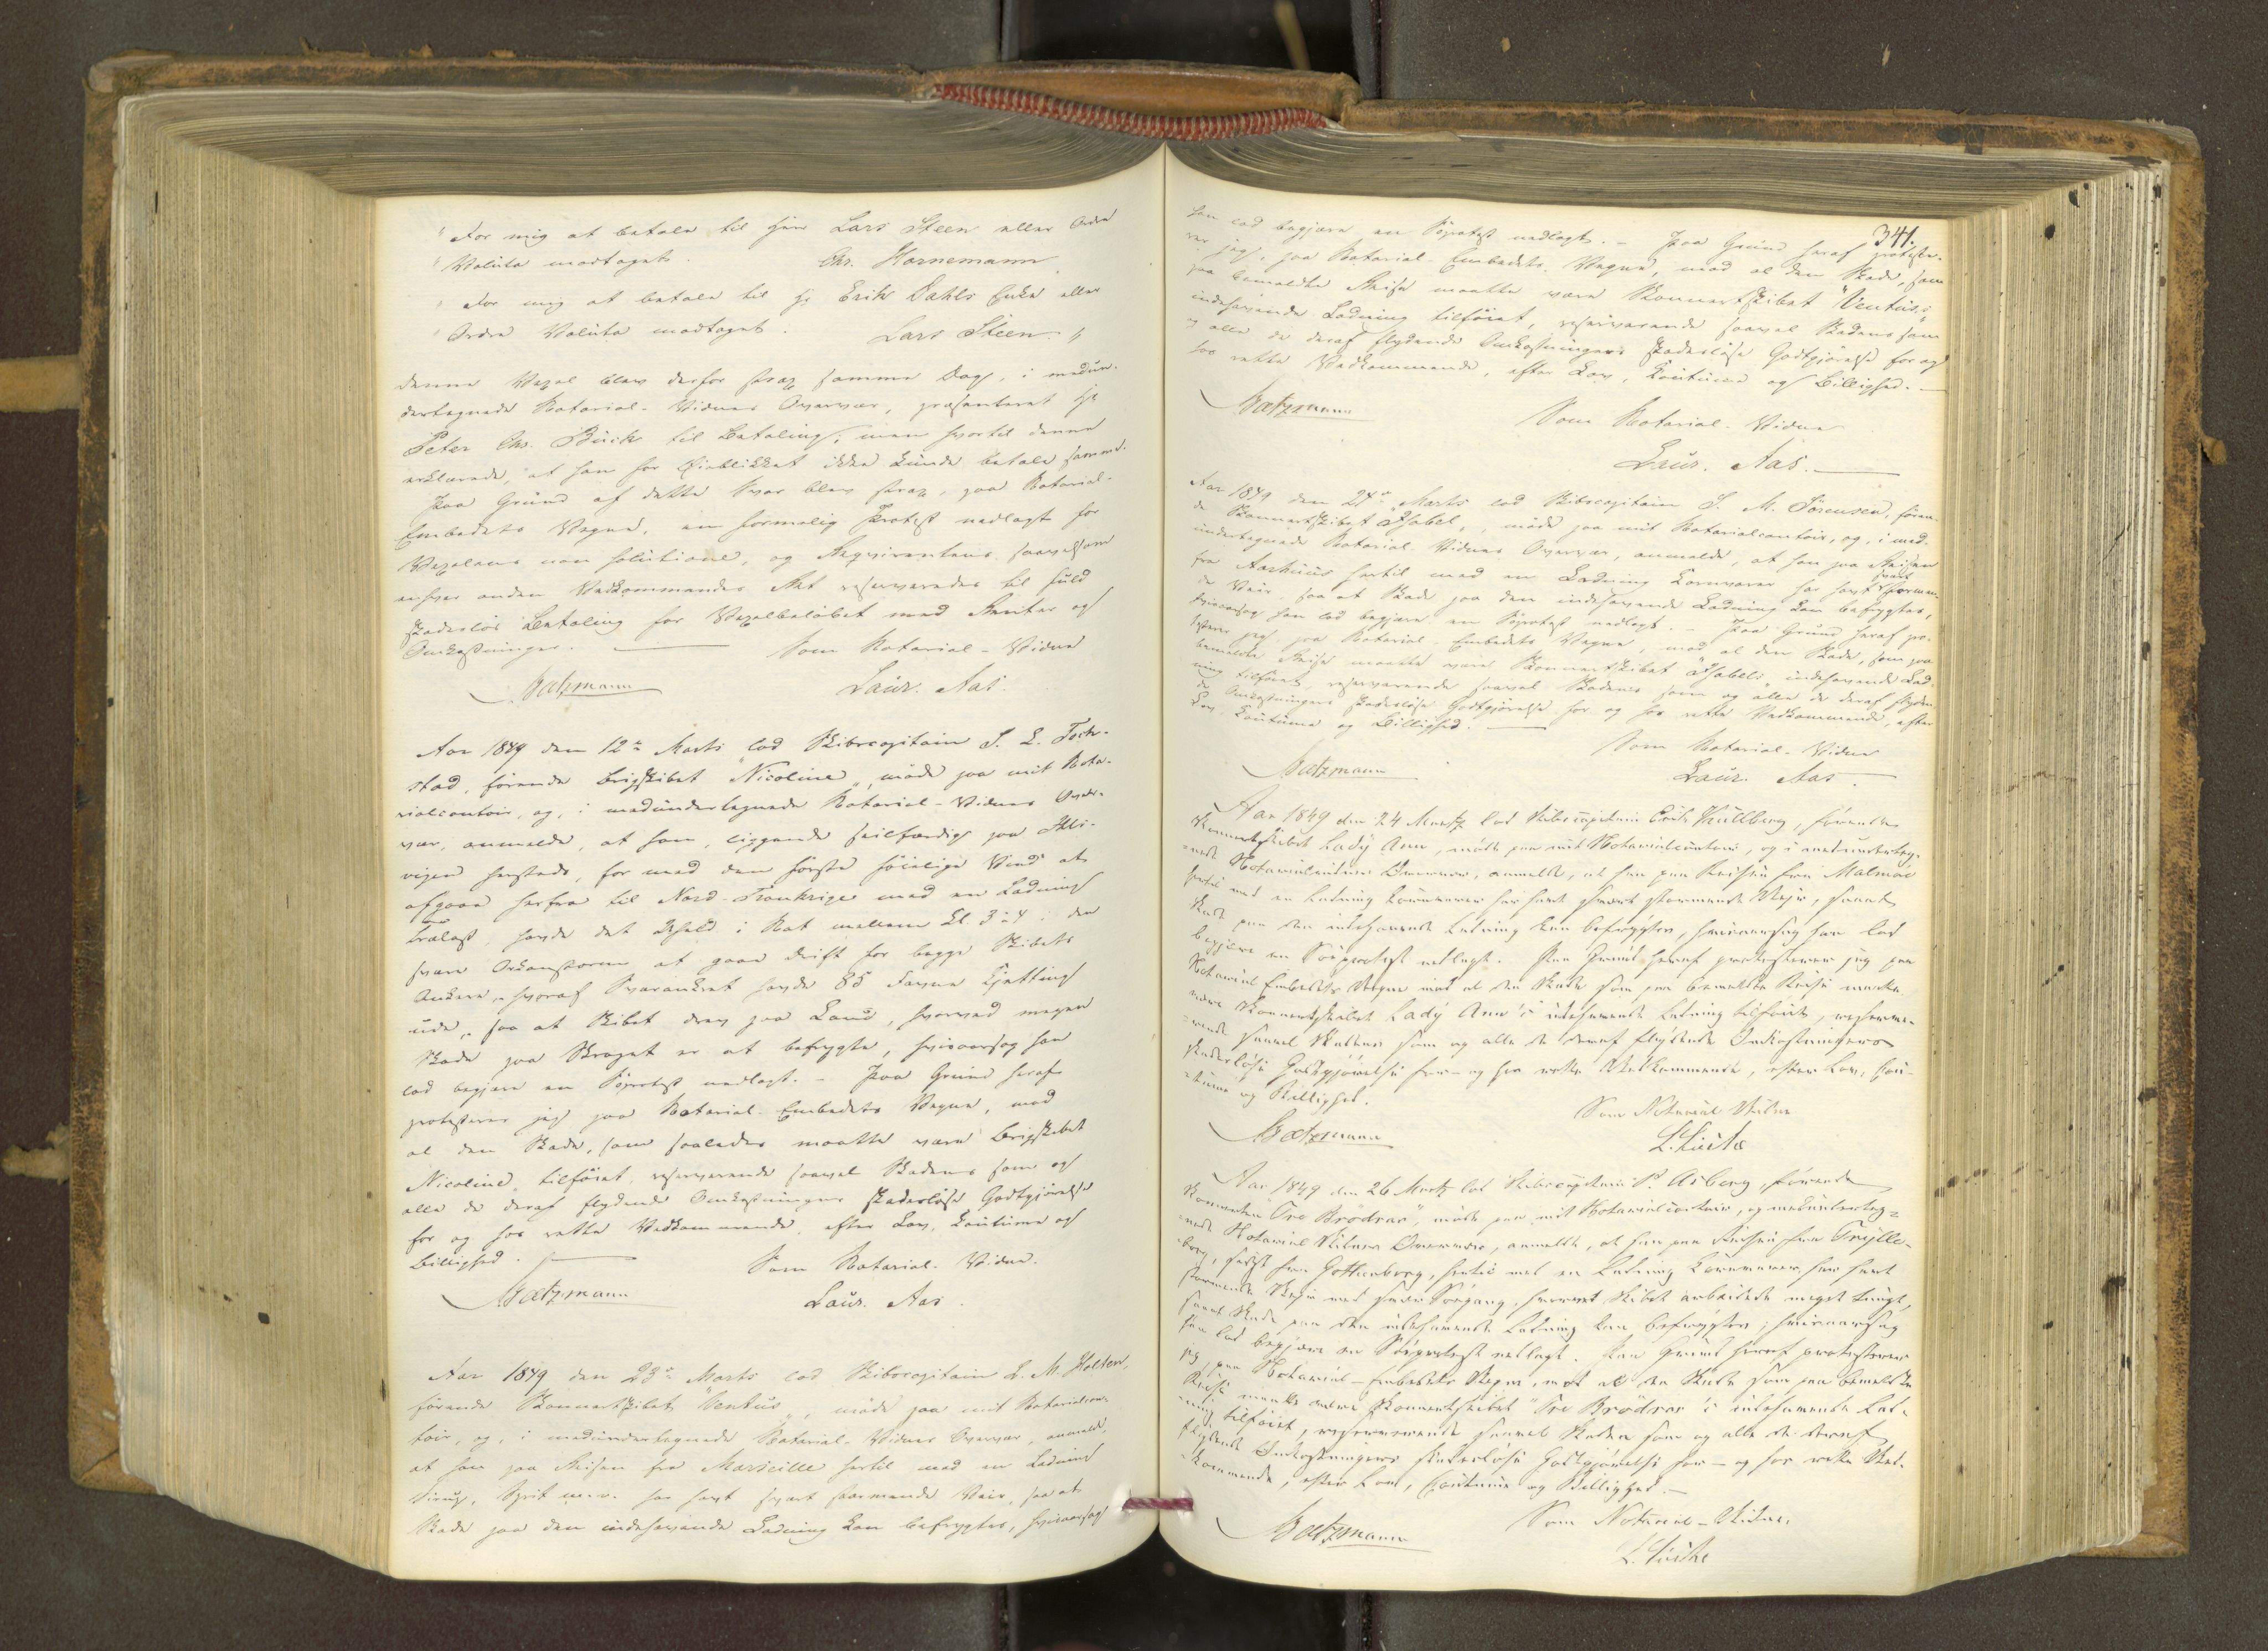 "For mig at betale til Herr Lars Steen eller Ordre
"Valuta modtaget. Chr. Hornemann
"For mig at betale til Hr Erik Dahls Enke eller
"Ordre Valuta modtaget. Lars Steen. "
Denne Vexel blev derfor strax samme Dag, i medun-
dertegnede Notarial-Vidnes Overvær, præsenteret Hr
Peter Chr. Buck til Betaling; men hvortil denne
erklærede, at han for Øieblikket ikke kunde betale samme.
Paa Grund af dette Svar blev strax, paa Notarial-
Embedets Vegne, en formelig Protest nedlagt for
Vexelens non solutione, og Reqvirentens saavelsom
enhver anden Vedkommendes Ret reserveredes til fuld
skadeslös Betaling for Vexelbelöbet med Renter og
Omkostninger. Som Notarial-Vidne
Motzmann Laur. Aas.
Aar 1849 den 12te Marts lod Skibscapitain S. L. Tech-
stad, förende Brigskibet "Nicoline", möde paa mit Nota-
rialcontoir, og, i medundertegnede Notarial-Vidnes Over-
vær, anmelde, at han, liggende seilfærdig paa
vigen hersteds, for med den förste föielige Vind at
afgaae herfra til Nord-Frankrige med en Ladning
Trælast, havde det Uheld i Nat mellem Kl. 3 à 4 i den
svære Orkanstorm at gaae drift for begge Skibets
Ankere, hvoraf Sværankret havde 85 Favne Kjetting
ude, saa at Skibet drev paa Land, hvorved megen
Skade paa Skroget er at befrygte, hvisaarsag han
lod begjære en Söprotest nedlagt. – Paa Grund heraf
protesterer jeg paa Notarial-Embedets Vegne, mod
al den Skade, som saaledes maatte være Brigskibet
Nicoline tilföiet, reserverende saavel Skadens som og
alle de deraf flydende Omkostningers skadeslöse Godtgjörelse
for og hos rette Vedkommende, efter Lov, Coutume og
Billighed. Som Notarial-Vidne.
Motzmann Laur. Aas.
Aar 1849 den 23de Marts lod Skibscapitain L. M. Holten,
förende Skonnertskibet "Ventus", möde paa mit Notarialcon-
toir, og, i medundertegnede Notarial-Vidnes Overvær, anmelde,
at han paa Reisen fra Marseille hertil med en Ladning
Sirup, Sprit m.v. har havt svært stormende Veir, saa at
Skade paa den indehavende Ladning kan befrygtes, hvisaarsag
341.
han lod begjære en Söprotest nedlagt. – Paa Grund heraf proteste-
rer jeg, paa Notarial-Embedets Vegne, mod al den Skade, som
paa bemeldte Reise maatte være Skonnertskibet "Ventus's"
indehavende Ladning tilföiet, reserverende saavel Skadens som
og alle de deraf flydende Omkostningers skadeslöse Godtgjörelse for og
hos rette Vedkommende, efter Lov, Coutume og Billighed. –
Motzmann Som Notarial-Vidne
Laur. Aas.
Aar 1849 den 24de Marts lod Skibscapitain S. M. Sörensen, fören-
de Skonnertskibet "Isabel", möde paa mit Notarialcontoir, og, i med-
undertegnede Notarial-Vidnes Overvær, anmelde, at han paa Reisen
fra Aarhuus hertil med en Ladning Kornvarer har havt svært stormen-
de Veir, saa at Skade paa den indehavende Ladning kan befrygtes,
hvisaarsag han lod begjære en Söprotest nedlagt. – Paa Grund heraf pro-
testerer jeg paa Notarial-Embedets Vegne, mod al den Skade, som paa
bemeldte Reise maatte være Skonnertskibet "Isabels" indehavende Lad-
ning tilföiet, reserverende saavel Skadens som og alle de deraf flyden-
de Omkostningers skadeslöse Godtgjörelse for og hos rette Vedkommende, efter
Lov, Coutume og Billighed. Som Notarial-Vidne
Motzmann Laur. Aas.
Aar 1849 den 24 Marts lod Skibscapitain Erik Kullberg, förende
Skonnertskibet Lady Ann, möde paa mit Notarialcontoir, og i medunderteg-
nede Notarialvidnes Overvær, anmelde, at han paa Reisen fra Malmöe
hertil med en Ladning Kornvarer har havt svært stormende Veir, saa at
Skade paa den indehavende Ladning kan befrygtes, hvisaarsag han lod
begjære en Söeprotest nedlagt. Paa Grund heraf protesterer jeg paa
Notarial Embedets Vegne mod al den Skade som paa bemeldte Reise maatte
være Skonnertskibet Lady Ann's indehavende Ladning tilföiet, reserve-
rende saavel Skadens som og alle de deraf flydende Omkostningers
skadeslöse Godtgjörelse for – og hos rette Vedkommende, efter Lov, Cou-
tume og Billighed. Som Notarial Vidne
Motzmann
Aar 1849 den 26 Marts lod Skibscapitain P. Asberg, förende
Skonnerten "Tre Brödrar", möde paa mit Notarialcontoir, og medunderteg-
nede Notarial Vidnes Overvær, anmelde, at han paa Reisen fra Trylle-
borg, sidst fra Gothenborg, hertil med en Ladning Kornvarer, har havt
stormende Veir med svær Söegang, hvorved Skibet arbeidede meget tungt,
saa at Skade paa den indehavende Ladning kan befrygtes, hvisaarsag
han lod begjære en Söeprotest nedlagt. Paa Grund heraf protesterer
jeg paa Notarial-Embedets Vegne, mod al den Skade som paa bemeldte
Reise maatte være Skonnertskibet "Tre Brödrar's" indehavende Lad-
ning tilföiet, reserverende saavel Skaden som og alle de deraf
flydende Omkostningers skadeslöse Godtgjörelse for – og hos rette Ved-
kommende, efter Lov, Coutume og Billighed. –
Motzmann Som Notarial-Vidne.